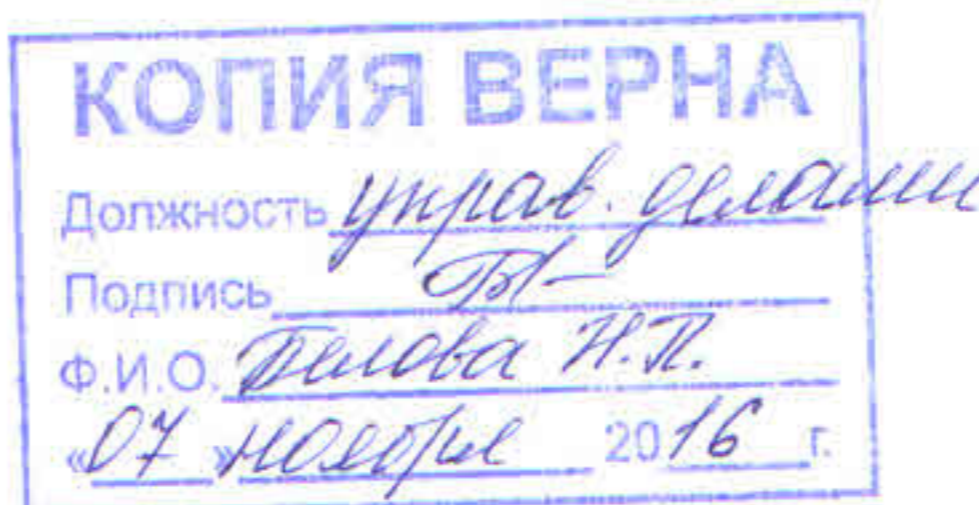 КОПИЯ ВЕРНА
Должность управ. делами
Подпись
Ф.И.О. Белова Н.П.
«07» ноября 2016 г.